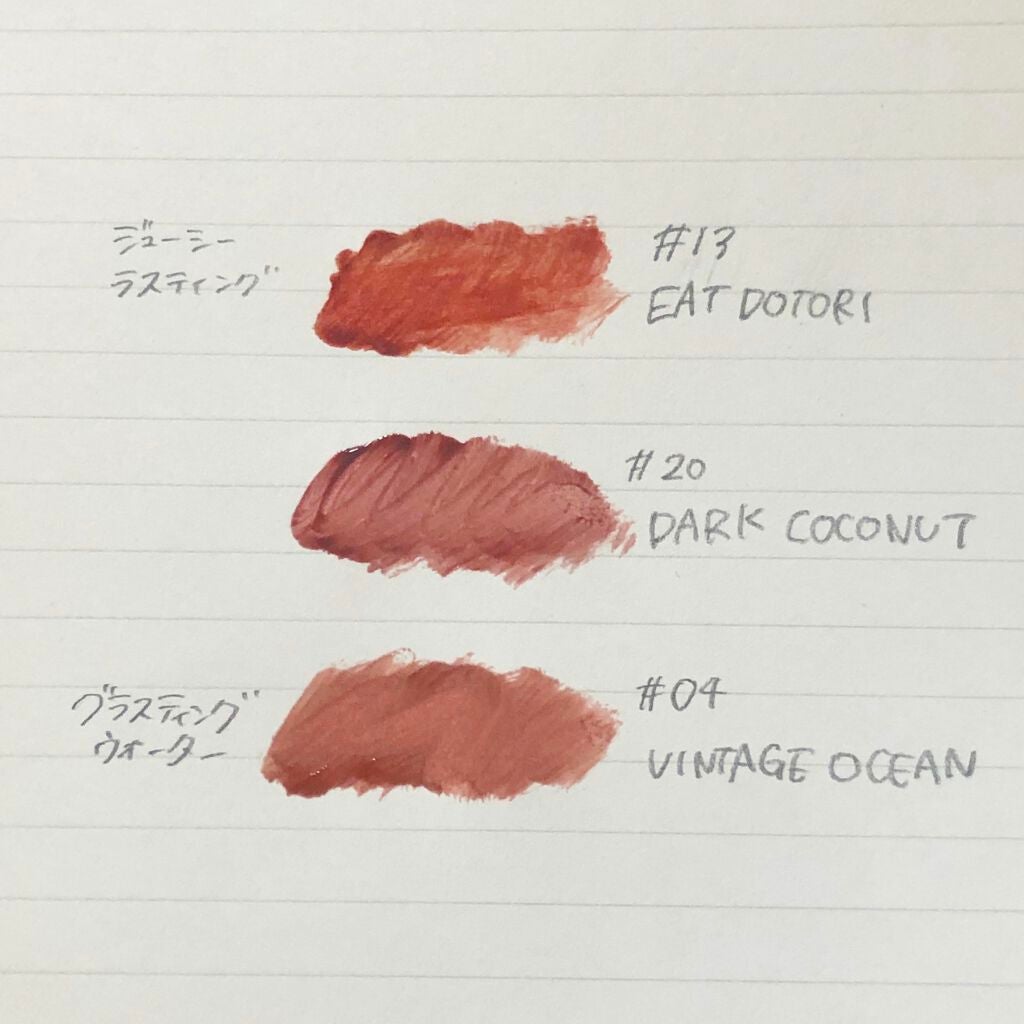 ジューシー
ラスティング
#13
EAT DOTORI
#20
DARK COCONUT
グラスティング
ウォーター
#04
VINTAGE OCEAN